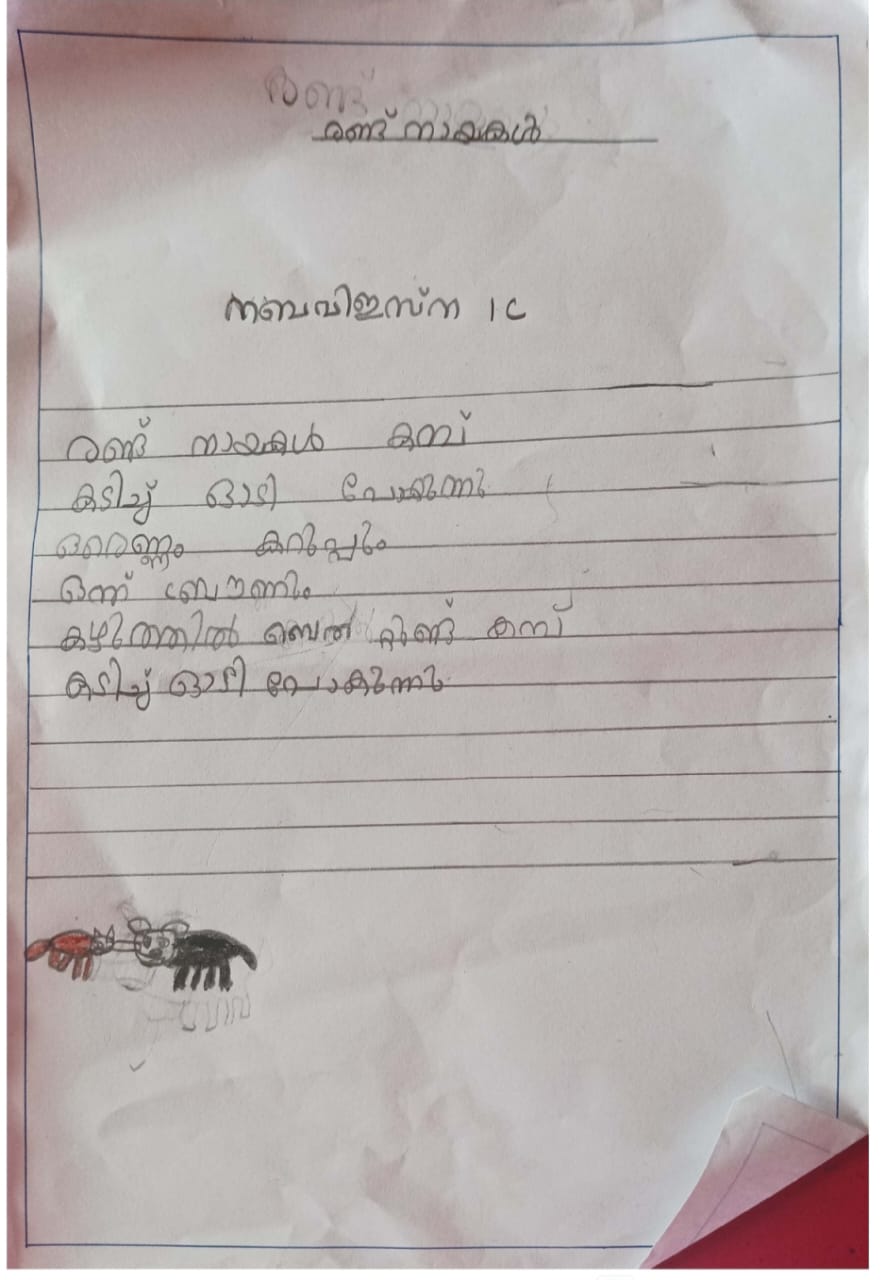 രണ്ട്
രണ്ട് നായകൾ
നബവിഇസ്ന 1C
രണ്ട് നായകൾ കമ്പ്
കടിച്ച് ഓടി പോകുന്നു
ഒരെണ്ണം കറുപ്പും
ഒന്ന് ബ്രൗണും
കഴുത്തിൽ ബെൽ റ്റുണ്ട് കമ്പ്
കടിച്ച് ഓടി പോകുന്നു